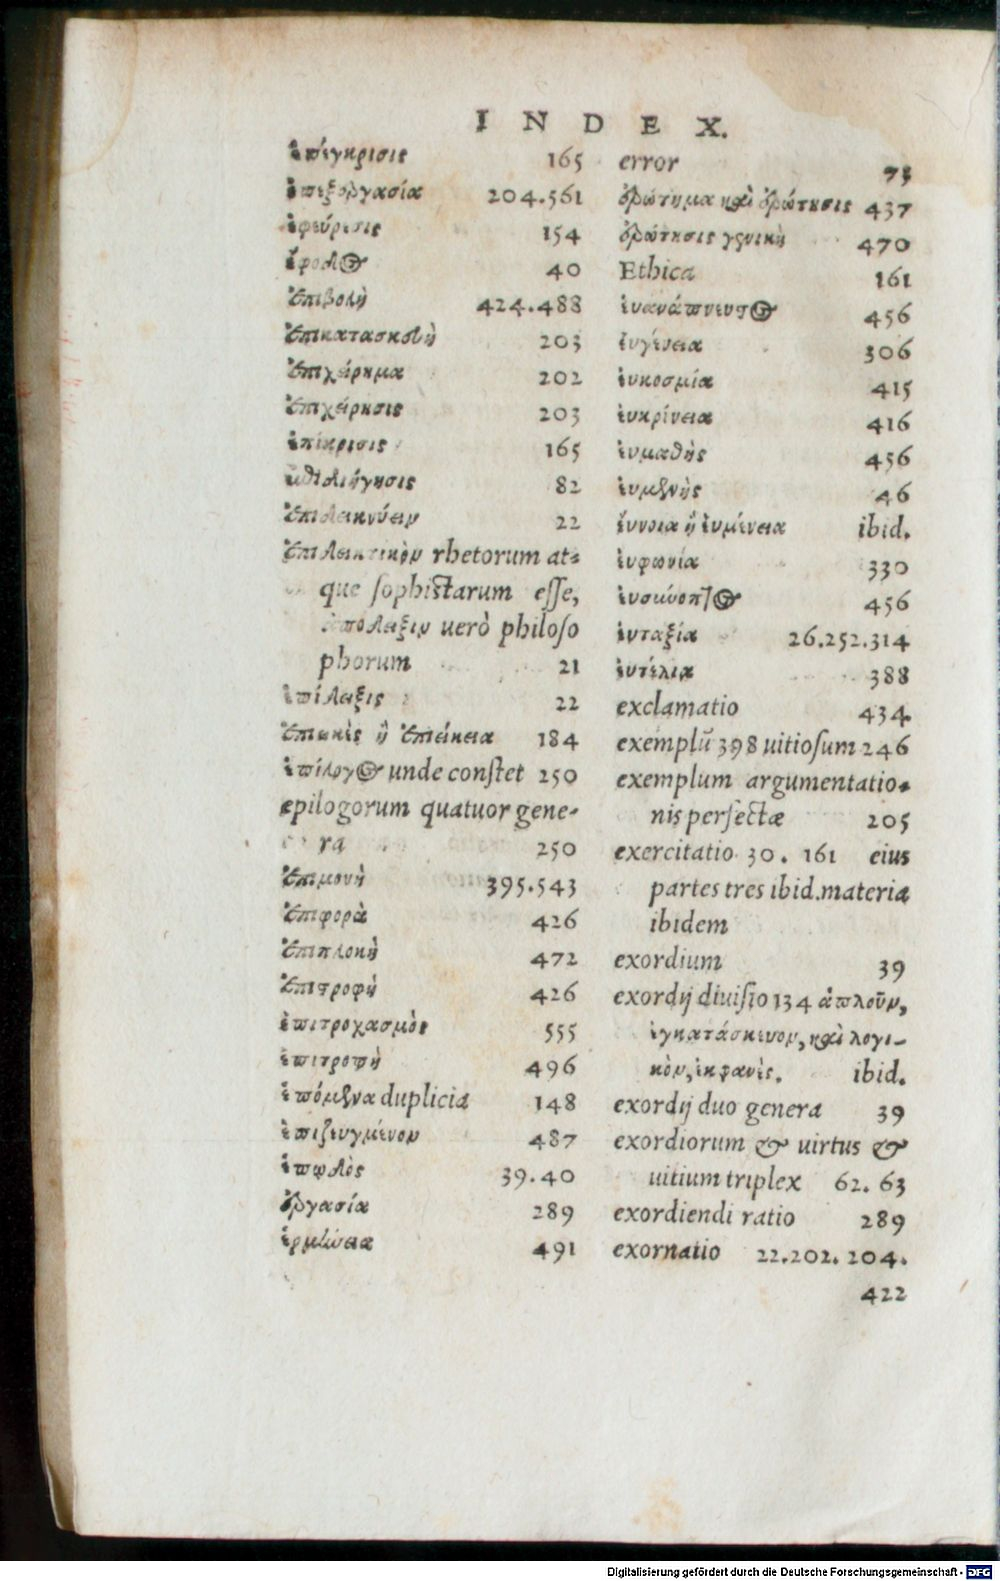 INDEX.
ἐπέγκρισις 165
ἐπεξεργασία 204.561
ἐφεύρεσις 154
ἔφοδος 40
ἐπιβολὴ 424.488
ἐπικατασκευὴ 203
ἐπιχείρημα 202
ἐπιχείρησις 203
ἐπίκρισις 165
ἐπιδιήγησις 82
ἐπιδεικνύειν 22
ἐπιδεικτικὸν rhetorum at-
que sophistarum esse,
ἀπόδειξιν uerò philoso
phorum 21
ἐπίδειξις 22
ἐπιεικὲς ἢ ἐπιείκεια 184
ἐπίλογος unde constet 250
epilogorum quatuor gene-
ra 250
ἐπιμονὴ 395.543
ἐπιφορὰ 426
ἐπιπλοκὴ 472
ἐπιστροφὴ 426
ἐπιτροχασμὸς 555
ἐπιτροπὴ 496
ἑπόμενα duplicia 148
ἐπεζευγμένον 487
ἐπῳδὸς 39.40
ἐργασία 289
ἑρμηνεία 491
error 73
ἐρώτημα καὶ ἐρώτησις 437
ἐρώτησις γενικὴ 470
Ethica 161
ἐυανάπνευστος 456
ἐυγένεια 306
ἐυκοσμία 415
ἐυκρίνεια 416
ἐυμαθὴς 456
ἐυμενὴς 46
ἔυνοια ἢ ἐυμένεια ibid.
ἐυφωνία 330
ἐυσύνοπτος 456
ἐυταξία 26.252.314
ἐυτέλια 388
exclamatio 434
exemplū 398 uitiosum 246
exemplum argumentatio-
nis perfectæ 205
exercitatio 30. 161 eius
partes tres ibid.materia
ibidem
exordium 39
exordij diuisio 134 ἁπλοῦν,
ἐγκατάσκευον, καὶ λογι-
κὸν, ἐκφανὲς. ibid.
exordij duo genera 39
exordiorum & uirtus &
uitium triplex 62. 63
exordiendi ratio 289
exornatio 22.202.204.
422
Digitalisierung gefördert durch die Deutsche Forschungsgemeinschaft - DFG